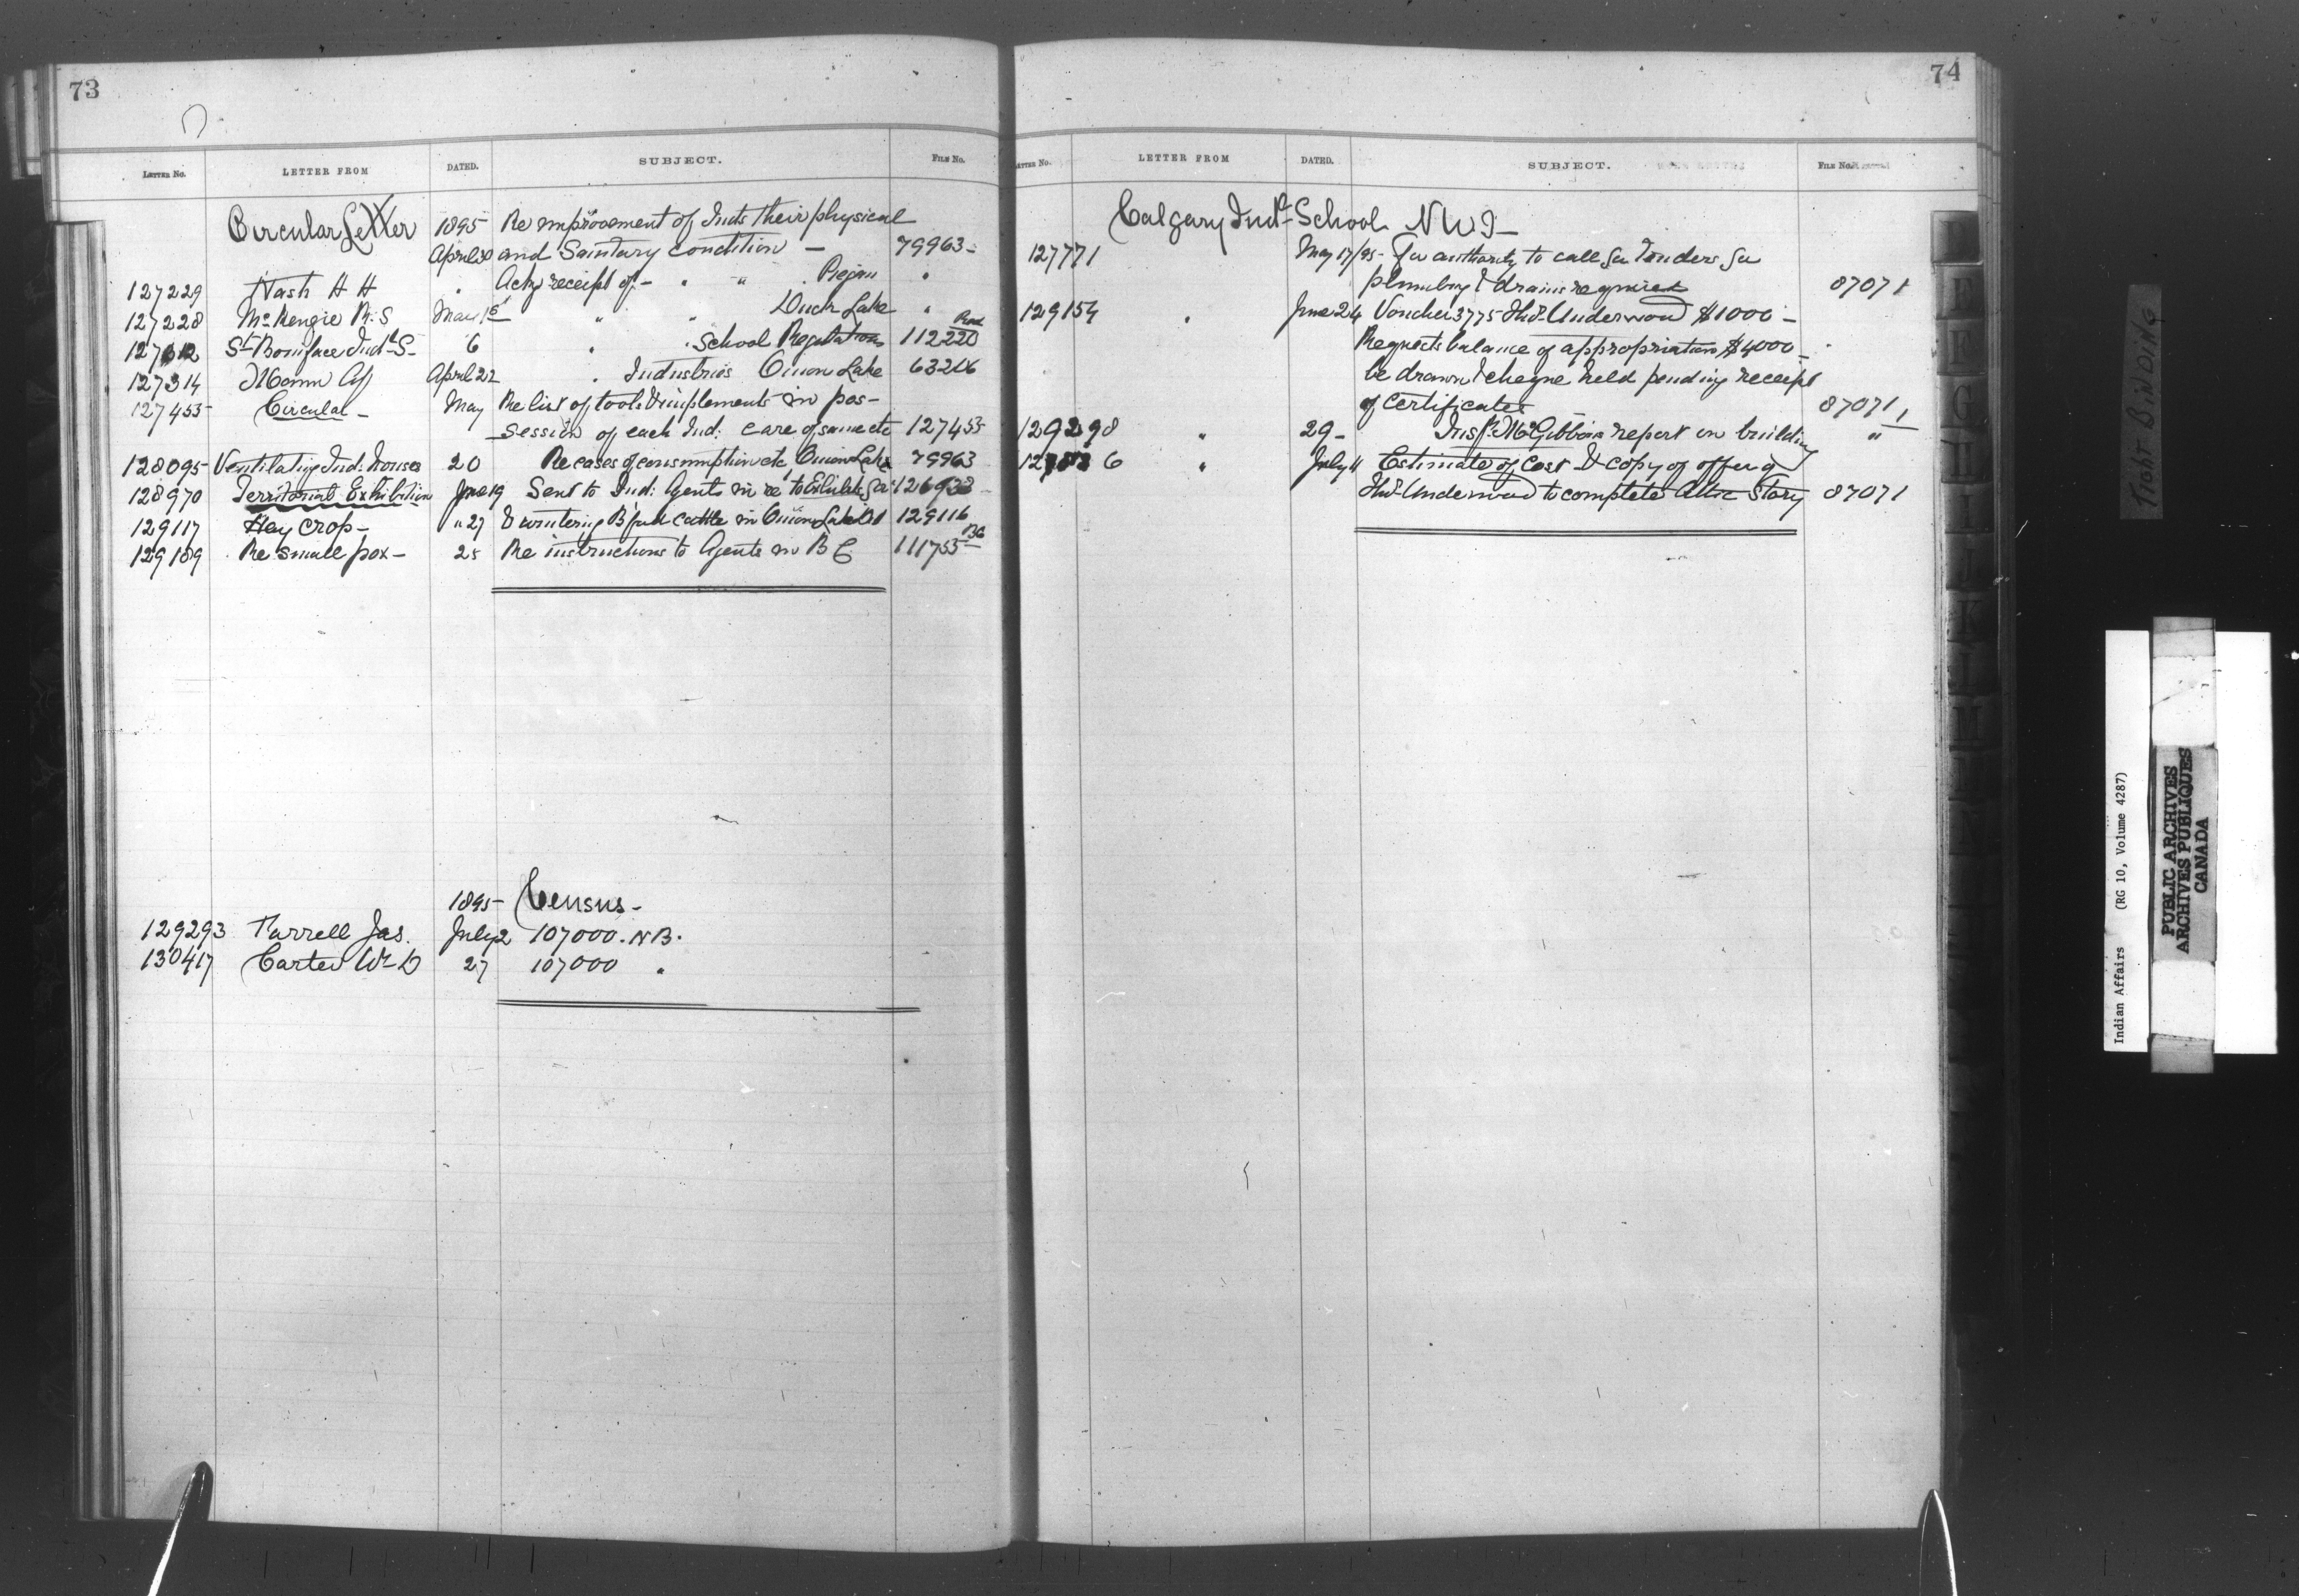 73
LETTER NO. LETTER FROM DATED. SUBJECT. FILE No.
Circular Letter 1895 Re improvement of Inds their physical
April 30 and Sanitary condition — 79963 -
127229 Nash H H " Ackg receipt of — " " Piegan "
127228 McKenzie R. S May 1st " " Duck Lake "
St Boniface Indl S- 6 " " School Regulations 112220
127314 Mann Gf April 22 " Industries Onion Lake 63206
127455 Circular - May Re list of tools & implements in pos-
session of each Ind: care of same etc 127455
128095 Ventilating Ind: houses 20 Re cases of consumption etc Onion Lake 79963
128970 Territorial Exhibition June 19 Sent to Ind: Agents in re to Exhibits
129117 Hay crop - " 27 & wintering cattle in Onion Lake 129116
129189 Re small pox - 28 Re instructions to Agents in B C 111755 BC
1895 Census -
129293 Farrell Jas. July 2 107000. NB.
130417 Carter Wm D 27 107000 "
74
LETTER NO. LETTER FROM DATED. SUBJECT. FILE No.
Calgary Indl School NWT -
127771 May 17/95 - For authority to call for Tenders for
plumbing & drains required 87071
129154 " June 24 Voucher 3775 Thos. Underwood $1000 -
Requests balance of appropriation $4000 -
be drawn & cheque held pending receipt
of certificates 87071
129298 " 29 - Insp. McGibbon's report on building "
" July 11 Estimate of cost & copy of offer of
Thos. Underwood to complete Attic Story 87071
TIGHT BINDING
Indian Affairs (RG 10, Volume 4287)
PUBLIC ARCHIVES
ARCHIVES PUBLIQUES
CANADA